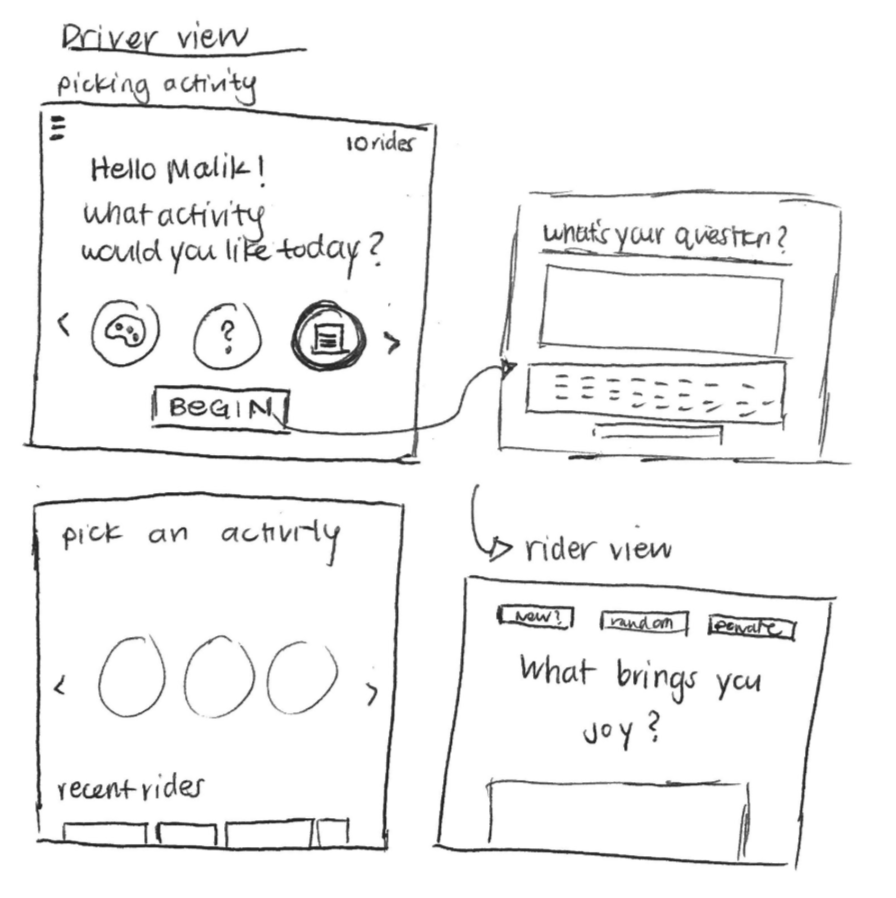 Driver view
picking activity
10 rides
Hello Malik!
what activity
would you like today?
< ? >
BEGIN
what's your question?
pick an activity
< >
recent rides
rider view
new? random private
What brings you
joy?